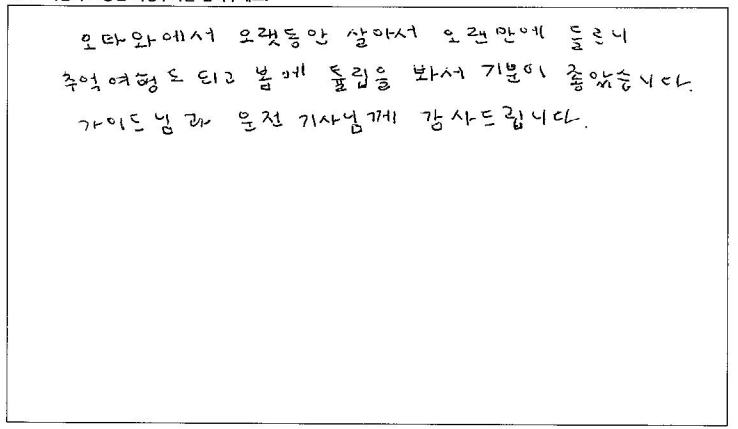 오타와에서 오랫동안 살아서 오랜만에 들르니
추억여행도 되고 봄에 튤립을 봐서 기분이 좋았습니다.
가이드님과 운전 기사님께 감사드립니다.